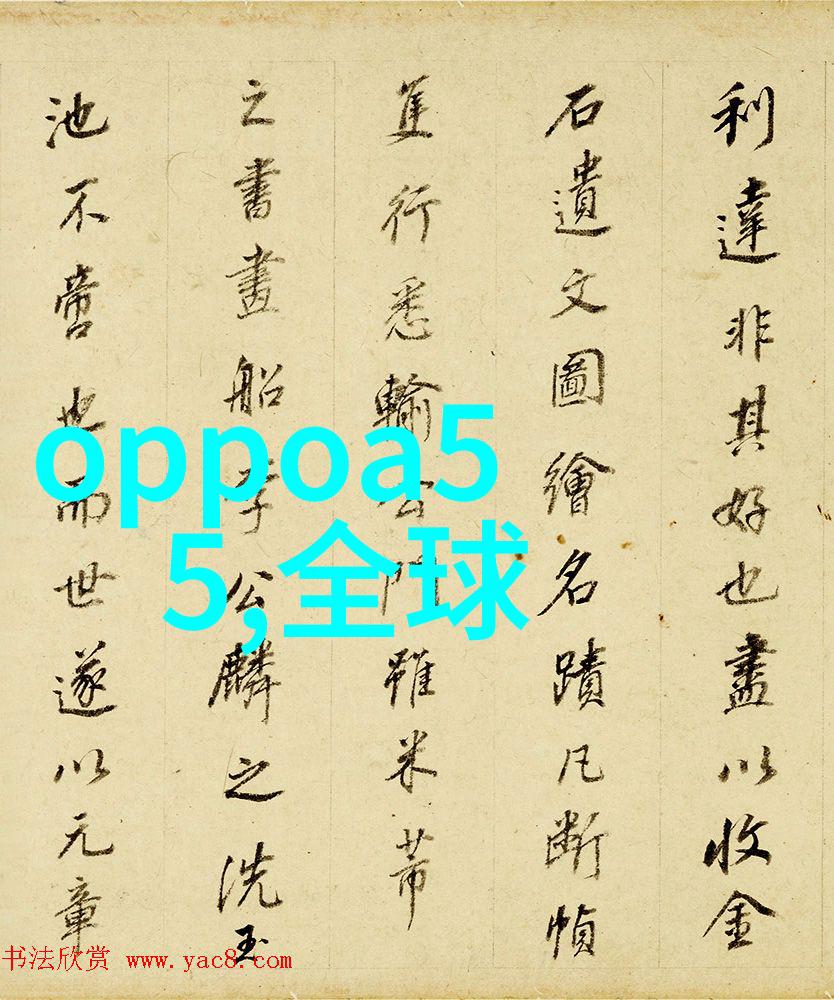 利達非其好也盡以收金
石遺文圖繪名蹟凡斷幀
隻行悉輸公門雖米芾
之書畫船李公麟之洗玉
池不啻也而世遂以元章
oppoa5
5,全球
书法欣赏 www.yac8.com